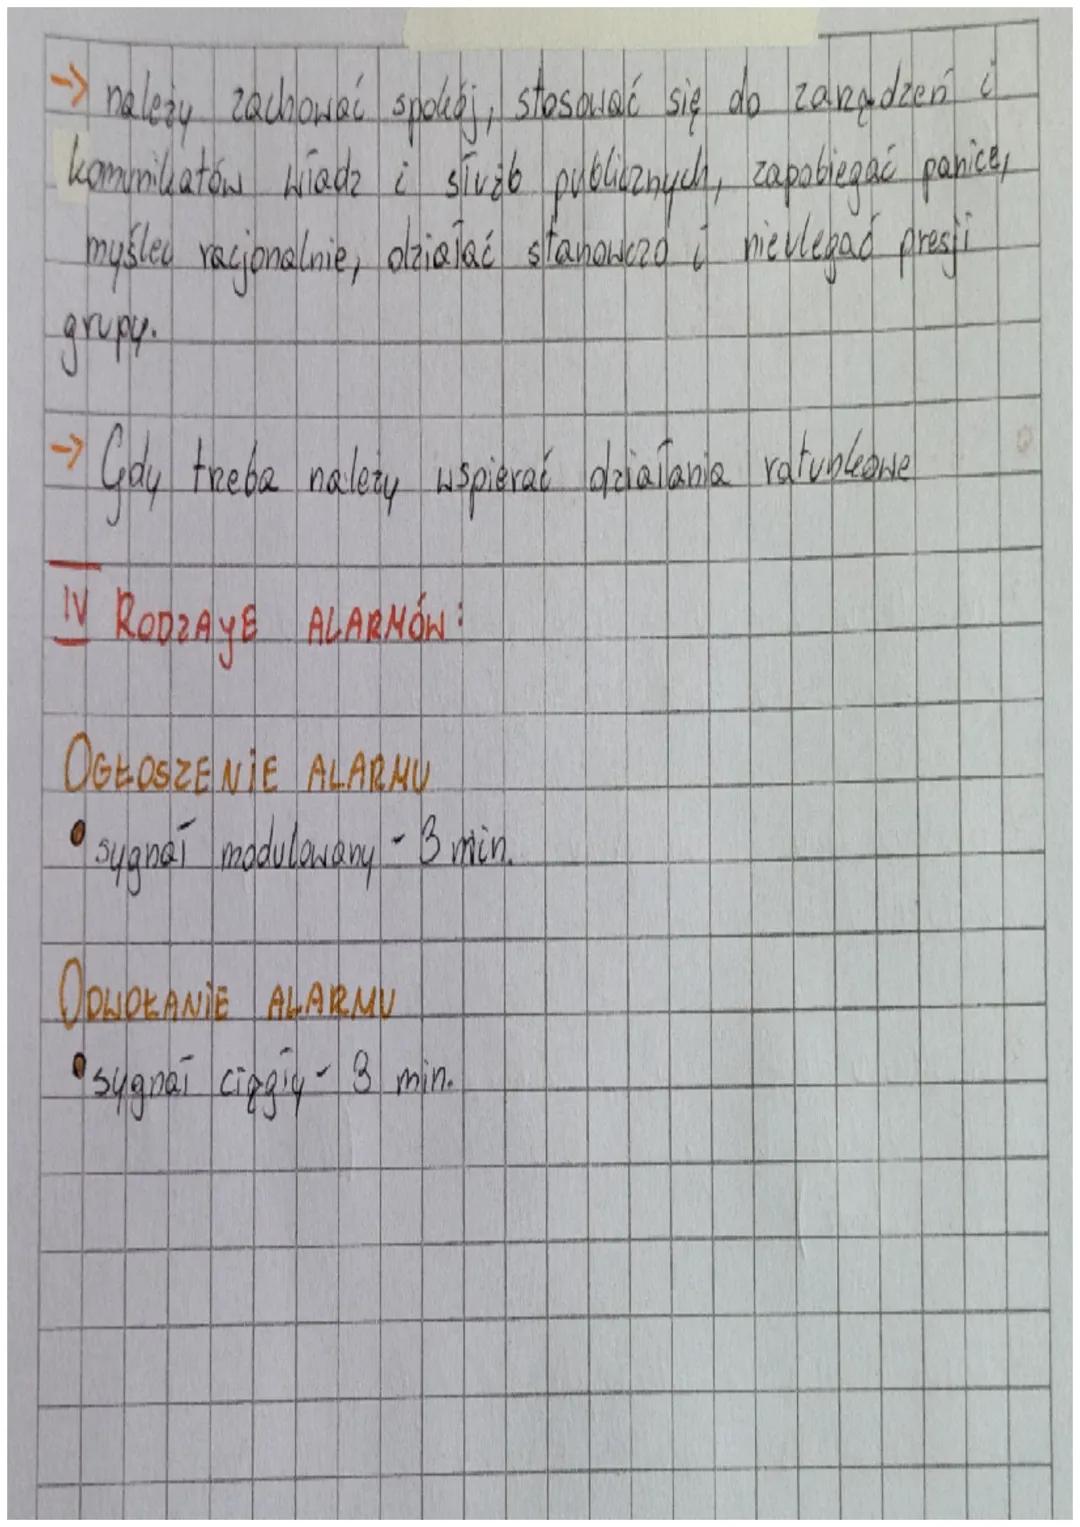 → należy zachować spokój, stosować się do zarządzeń i
komunikatów władz i służb publicznych, zapobiegać panice,
myśleć racjonalnie, działać stanowczo i nieulegać presji
grupy.
→ Gdy trzeba należy wspierać działania ratunkowe
IV RODZAYE ALARMÓW:
OGŁOSZENIE ALARMU
• sygnał modulowany - 3 min.
ODWOŁANIE ALARMU
• sygnał ciągły - 3 min.